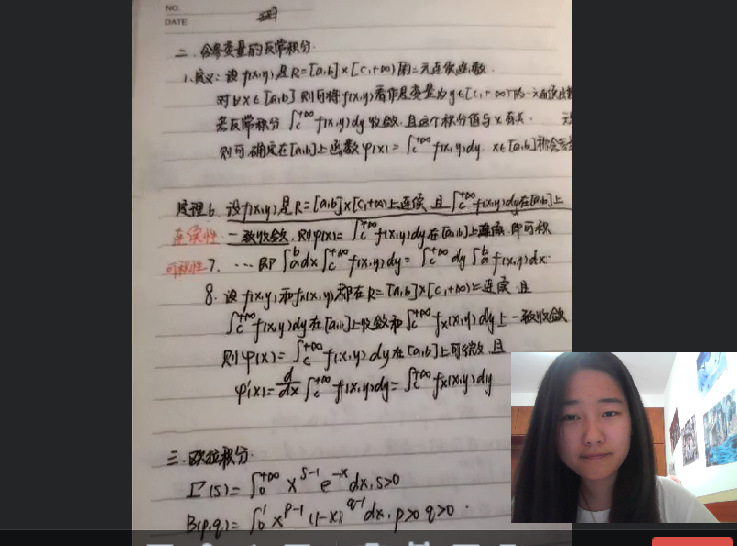 NO.
DATE
二. 含参变量的反常积分.
1.定义: 设 f(x,y) 是 R=[a,b]×[c,+∞) 的二元连续函数.
对∀x∈[a,b] 则可将 f(x,y) 看作是变量为 y∈[c,+∞) 的一元连续函数
若反常积分 ∫c^{+∞} f(x,y)dy 收敛, 且这个积分值与 x 有关.
则可确定在[a,b]上函数 φ(x)=∫c^{+∞} f(x,y)dy. x∈[a,b] 称含参变
定理6. 设f(x,y)是R=[a,b]×[c,+∞)上连续 且 ∫c^{+∞} f(x,y)dy在[a,b]上
连续性 一致收敛, 则φ(x)=∫c^{+∞} f(x,y)dy 在[a,b]上连续. 即可积
可积性 7. … 即 ∫a^b dx ∫c^{+∞} f(x,y)dy = ∫c^{+∞} dy ∫a^b f(x,y)dx.
8. 设 f(x,y) 和 fx(x,y) 都在 R=[a,b]×[c,+∞) 上连续 且
∫c^{+∞} f(x,y)dy 在[a,b]上收敛 和 ∫c^{+∞} fx(x,y)dy 上一致收敛
则 φ(x)=∫c^{+∞} f(x,y)dy 在[a,b]上可微, 且
φ'(x)=d/dx ∫c^{+∞} f(x,y)dy = ∫c^{+∞} fx(x,y)dy
三. 欧拉积分.
Γ(s)=∫0^{+∞} x^{s-1} e^{-x} dx, s>0
B(p,q)=∫0^1 x^{p-1} (1-x)^{q-1} dx, p>0 q>0.